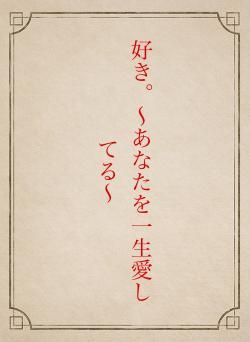 好き。〜あなたを一生愛し
てる〜